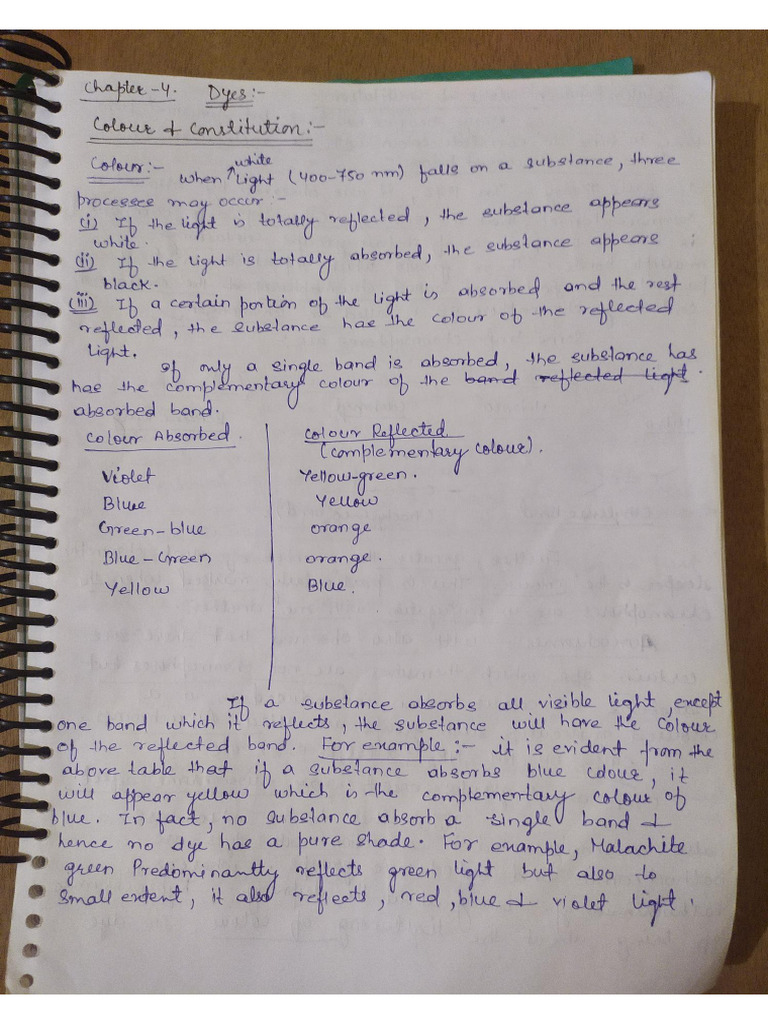 Chapter-4. Dyes:-
Colour & Constitution:-
Colour:- When white light (400-750 nm) falls on a substance, three
processes may occur:-
(i) If the light is totally reflected, the substance appears
white.
(ii) If the light is totally absorbed, the substance appears
black.
(iii) If a certain portion of the light is absorbed and the rest
reflected, the substance has the colour of the reflected
light.
If only a single band is absorbed, the substance has
has the complementary colour of the band reflected light.
absorbed band.
Colour Absorbed. Colour Reflected
(complementary colour).
Violet Yellow-green.
Blue Yellow
Green-blue orange
Blue-Green orange.
Yellow Blue.
If a substance absorbs all visible light, except
one band which it reflects, the substance will have the colour
of the reflected band. For example:- it is evident from the
above table that if a substance absorbs blue colour, it
will appear yellow which is the complementary colour of
blue. In fact, no substance absorb a single band &
hence no dye has a pure shade. For example, Malachite
green Predominantly reflects green light but also to
small extent, it also reflects, red, blue & violet light.